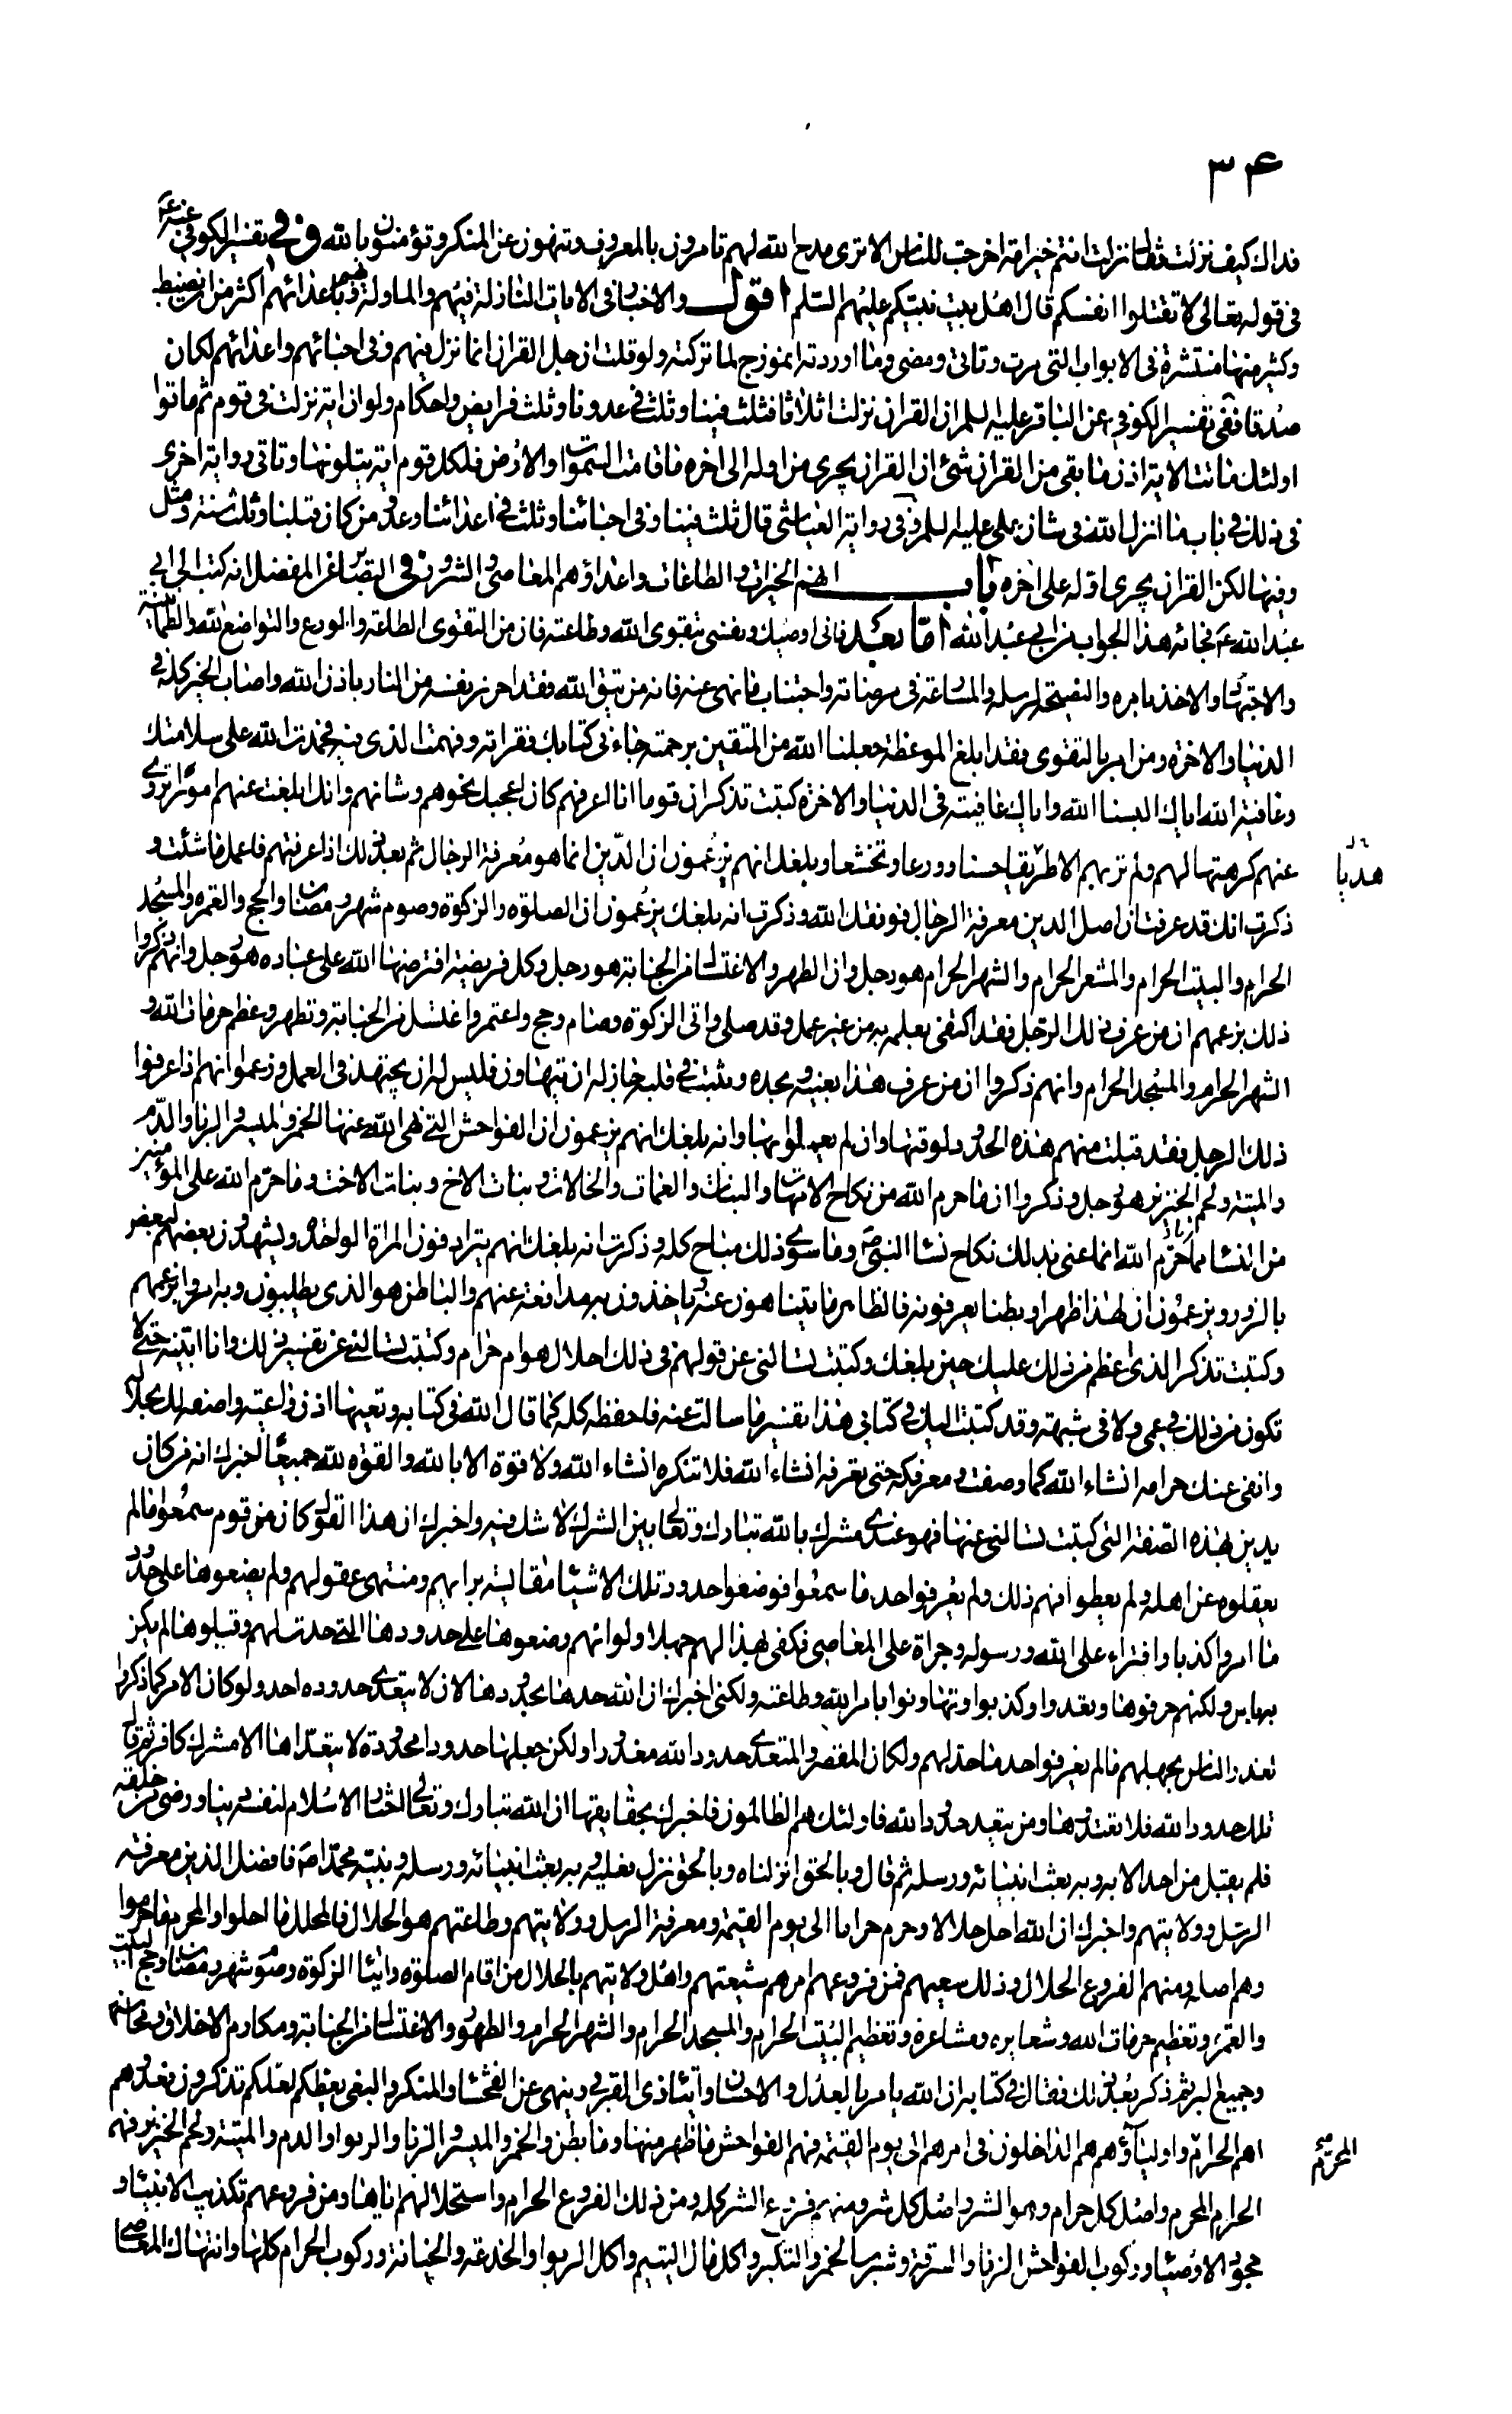 ٣۴
فداك كيف نزلت فقال نزلت انتم خير امة اخرجت للناس الا ترى مدح الله لهم تامرون بالمعروف وتنهون عن المنكر وتؤمنون بالله وفي تفسير الكوفي عنه ع
في قوله تعالى لا تقتلوا انفسكم قال اهل بيت نبيكم عليهم السلم اقول والاخبار في الايات النازلة فيهم والماولة بهم وباعدائهم اكثر من ان يضبط
وكثير منها منتشرة في الابواب التي مرت وتاتي ومضى وما اوردته انموذج لما تركته ولو قلت ان جل القران انما نزل فيهم وفي احبائهم واعدائهم لكان
صدقا ففي تفسير الكوفي عن الباقر عليه السلم ان القران نزلت اثلاثا فثلث فينا وثلث في عدونا وثلث فرايض واحكام ولو ان اية نزلت في قوم ثم ماتوا
اولئك ماتت الاية اذن ما بقي من القران شئ ان القران يجري من اوله الى اخره ما قامت السموات والارض فلكل قوم اية يتلونها وتاتي رواية اخرى
في ذلك في باب ما انزل الله في شان علي عليه السلم وفي رواية العياشي قال ثلث فينا وفي احبائنا وثلث في اعدائنا وعدو من كان قبلنا وثلث سنة ومثل
وفيها لكن القران يجري اوله على اخره باب انهم الخيرات والطاعات واعداؤهم المعاصي والشرور في البصاير عن المفضل انه كتب الى ابي
عبد الله ع فجائه هذا الجواب من ابي عبد الله اما بعد فاني اوصيك ونفسي بتقوى الله وطاعته فان من التقوى الطاعة والورع والتواضع لله والطمانينة
والاجتهاد والاخذ بامره والنصيحة لرسله والمسارعة في مرضاته واجتناب ما نهى عنه فانه من يتق الله فقد احرز نفسه من النار باذن الله واصاب الخير كله في
الدنيا والاخرة ومن امر بالتقوى فقد ابلغ الموعظة جعلنا الله من المتقين برحمته جاءني كتابك فقراته وفهمت الذي فيه فحمدت الله على سلامتك
وعافية الله اياك البسنا الله واياك عافيته في الدنيا والاخرة كتبت تذكر ان قوما انا اعرفهم كان اعجبك نحوهم وشانهم وانك ابلغت عنهم امورا تروى
عنهم كرهتها لهم ولم تر بهم الا طريقا حسنا وورعا وتخشعا وبلغك انهم يزعمون ان الدين انما هو معرفة الرجال ثم بعد ذلك اذا عرفتهم فاعمل ما شئت و
هديا
ذكرت انك قد عرفت ان اصل الدين معرفة الرجال فوفقك الله وذكرت انه بلغك يزعمون ان الصلوة والزكوة وصوم شهر رمضان والحج والعمرة والمسجد
الحرام والبيت الحرام والمشعر الحرام والشهر الحرام هو رجل وان الطهر والاغتسال من الجنابة هو رجل وكل فريضة افترضها الله على عباده هو رجل وانهم ذكروا
ذلك بزعمهم ان من عرف ذلك الرجل فقد اكتفى بعلمه به من غير عمل وقد صلى واتى الزكوة وصام وحج واعتمر واغتسل من الجنابة وتطهر وعظم حرمات الله و
الشهر الحرام والمسجد الحرام وانهم ذكروا ان من عرف هذا بعينه وبحده وثبت في قلبه جاز له ان يتهاون فليس له ان يجتهد في العمل وزعموا انهم اذا عرفوا
ذلك الرجل فقد قبلت منهم هذه الحدود لوقتها وان لم يعملوا بها وانه بلغك انهم يزعمون ان الفواحش التي نهى الله عنها الخمر والميسر والربا والدم
والميتة ولحم الخنزير هو رجل وذكروا ان ما حرم الله من نكاح الامهات والبنات والعمات والخالات وبنات الاخ وبنات الاخت وما حرم الله على المؤمنين
من النساء مما حرم الله انما عنى بذلك نكاح نساء النبي ص وما سوى ذلك مباح كله وذكرت انه بلغك انهم يترادفون المراة الواحدة ويشهدون بعضهم لبعض
بالزور ويزعمون ان لهذا ظهرا وبطنا يعرفونه فالظاهر ما يتناهون عنه ياخذون به مدافعة عنهم والباطن هو الذي يطلبون وبه امروا بزعمهم
وكتبت تذكر الذي عظم من ذلك عليك حين بلغك وكتبت تسالني عن قولهم في ذلك احلال هو ام حرام وكتبت تسالني عن تفسير ذلك وانا ابينه حتى لا
تكون من ذلك في عمى ولا في شبهة وقد كتبت اليك في كتابي هذا تفسير ما سالت عنه فاحفظه كله كما قال الله في كتابه وتعيها اذن واعية واصفه لك بحلاله
وانفي عنك حرامه انشاء الله كما وصفت ومعرفكه حتى تعرفه انشاء الله فلا تنكره انشاء الله ولا قوة الا بالله والقوة لله جميعا اخبرك انه من كان
يدين بهذه الصفة التي كتبت تسالني عنها فهو عندي مشرك بالله تبارك وتعالى بين الشرك لا شك فيه واخبرك ان هذا القول كان من قوم سمعوا ما لم
يعقلوه عن اهله ولم يعطوا فهم ذلك ولم يعرفوا حد ما سمعوا فوضعوا حدود تلك الاشياء مقايسة برايهم ومنتهى عقولهم ولم يضعوها على حدود
ما امروا كذبا وافتراء على الله ورسوله وجراة على المعاصي فكفى بهذا لهم جهلا ولو انهم وضعوها على حدودها التي حدت لهم وقبلوها لم يكن
به باس ولكنهم حرفوها وتعدوا وكذبوا وتهاونوا بامر الله وطاعته ولكني اخبرك ان الله حدها بحدودها لان لا يتعدى حدوده احد ولو كان الامر كما ذكروا
لعذر الناس بجهلهم ما لم يعرفوا حد ما حد لهم ولكان المقصر والمتعدي حدود الله معذورا ولكن جعلها حدودا محدودة لا يتعداها الا مشرك كافر ثم قال
تلك حدود الله فلا تعتدوها ومن يتعد حدود الله فاولئك هم الظالمون فاخبرك بحقايقها ان الله تبارك وتعالى اختار الاسلام لنفسه دينا ورضي من خلقه
فلم يقبل من احد الا به وبه بعث انبيائه ورسله ثم قال وبالحق انزلناه وبالحق نزل فعليه وبه بعث انبيائه ورسله ونبيه محمدا ص فافضل الدين معرفة
الرسل وولايتهم واخبرك ان الله احل حلالا وحرم حراما الى يوم القيمة ومعرفة الرسل وولايتهم وطاعتهم هو الحلال فالمحلل ما احلوا والمحرم ما حرموا
وهم اصله ومنهم الفروع الحلال وذلك سعيهم فمن فروعهم امرهم شيعتهم واهل ولايتهم بالحلال من اقام الصلوة وايتاء الزكوة وصوم شهر رمضان وحج البيت
والعمرة وتعظيم حرمات الله وشعايره ومشاعره وتعظيم البيت الحرام والمسجد الحرام والشهر الحرام والطهور والاغتسال من الجنابة ومكارم الاخلاق ومحاسنها
وجميع البر ثم ذكر بعد ذلك فقال في كتابه ان الله يامر بالعدل والاحسان وايتاء ذي القربى وينهى عن الفحشاء والمنكر والبغي يعظكم لعلكم تذكرون فعدوهم
هم الحرام واولياؤهم هم الداخلون في امرهم الى يوم القيمة فهم الفواحش ما ظهر منها وما بطن والخمر والميسر والزنا والربوا والدم والميتة ولحم الخنزير فهم
المحرم
الحرام المحرم واصل كل حرام وهم الشر واصل كل شر ومنهم فروع الشر كله ومن ذلك الفروع الحرام واستحلالهم اياها ومن فروعهم تكذيب الانبياء و
جحود الاوصياء وركوب الفواحش الزنا والسرقة وشرب الخمر والتكبر واكل مال اليتيم واكل الربوا والخدعة والخيانة وركوب الحرام كلها وانتهاك المعاصي